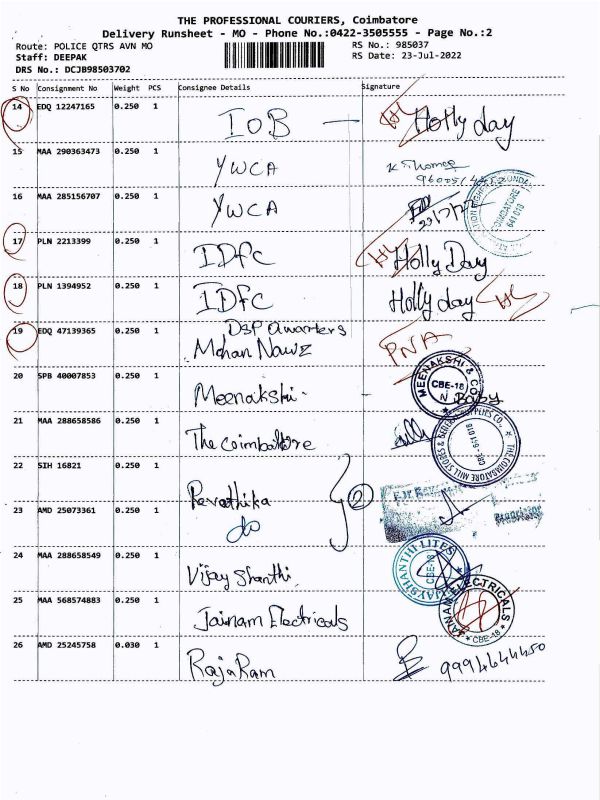 THE PROFESSIONAL COURIERS, Coimbatore
Delivery Runsheet - MO - Phone No.:0422-3505555 - Page No.:2
Route: POLICE QTRS AVN MO RS No.: 985037
Staff: DEEPAK RS Date: 23-Jul-2022
DRS No.: DCJB98503702
S No Consignment No Weight PCS Consignee Details Signature
14 EDQ 12247165 0.250 1 IOB — HL Holly day
15 MAA 290363473 0.250 1 YWCA K Thomas
16 MAA 285156707 0.250 1 YWCA COIMBATORE 641 018
17 PLN 2213399 0.250 1 IDFC HL Holly Day
18 PLN 1394952 0.250 1 IDFC Holly day HL
19 EDQ 47139365 0.250 1 DSP Quarters PNA
Mohan Nawz
20 SPB 40007853 0.250 1 Meenakshi - MEENAKSHI & CO CBE-18 N Baby
21 MAA 288658586 0.250 1 The Coimbattore THE COIMBATORE MILL STORES & GENERAL SUPPLIES CO., CBE-641 018
22 SIH 16821 0.250 1 Revathika 2
23 AMD 25073361 0.250 1 do
24 MAA 288658549 0.250 1 Vijay Shanthi. VIJAYSHANTHI LITES CBE-18
25 MAA 568574883 0.250 1 Jainam Electricals JAINAM ELECTRICALS CBE-18
26 AMD 25245758 0.030 1 RajaRam 9994644450